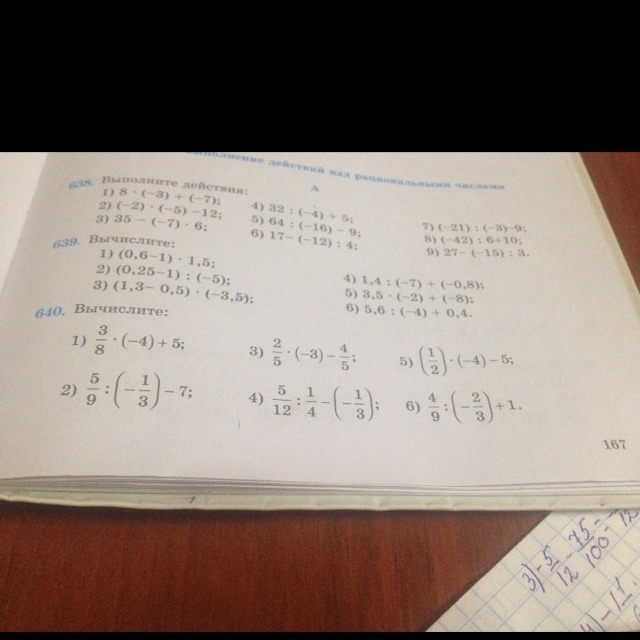 Выполнение действий над рациональными числами
А
638. Выполните действия:
1) 8 · (−3) + (−7);
2) (−2) · (−5) −12;
3) 35 − (−7) · 6;
4) 32 : (−4) + 5;
5) 64 : (−16) − 9;
6) 17− (−12) : 4;
7) (−21) : (−3)−9;
8) (−42) : 6+10;
9) 27− (−15) : 3.
639. Вычислите:
1) (0,6−1) · 1,5;
2) (0,25−1) : (−5);
3) (1,3− 0,5) · (−3,5);
4) 1,4 : (−7) + (−0,8);
5) 3,5 · (−2) + (−8);
6) 5,6 : (−4) + 0,4.
640. Вычислите:
1) 3/8 · (−4) + 5;
2) 5/9 : (−1/3) − 7;
3) 2/5 · (−3) − 4/5;
4) 5/12 : 1/4 − (−1/3);
5) (1/2) · (−4) − 5;
6) 4/9 : (−2/3) + 1.
167
3) −5/12 − 75/100 −